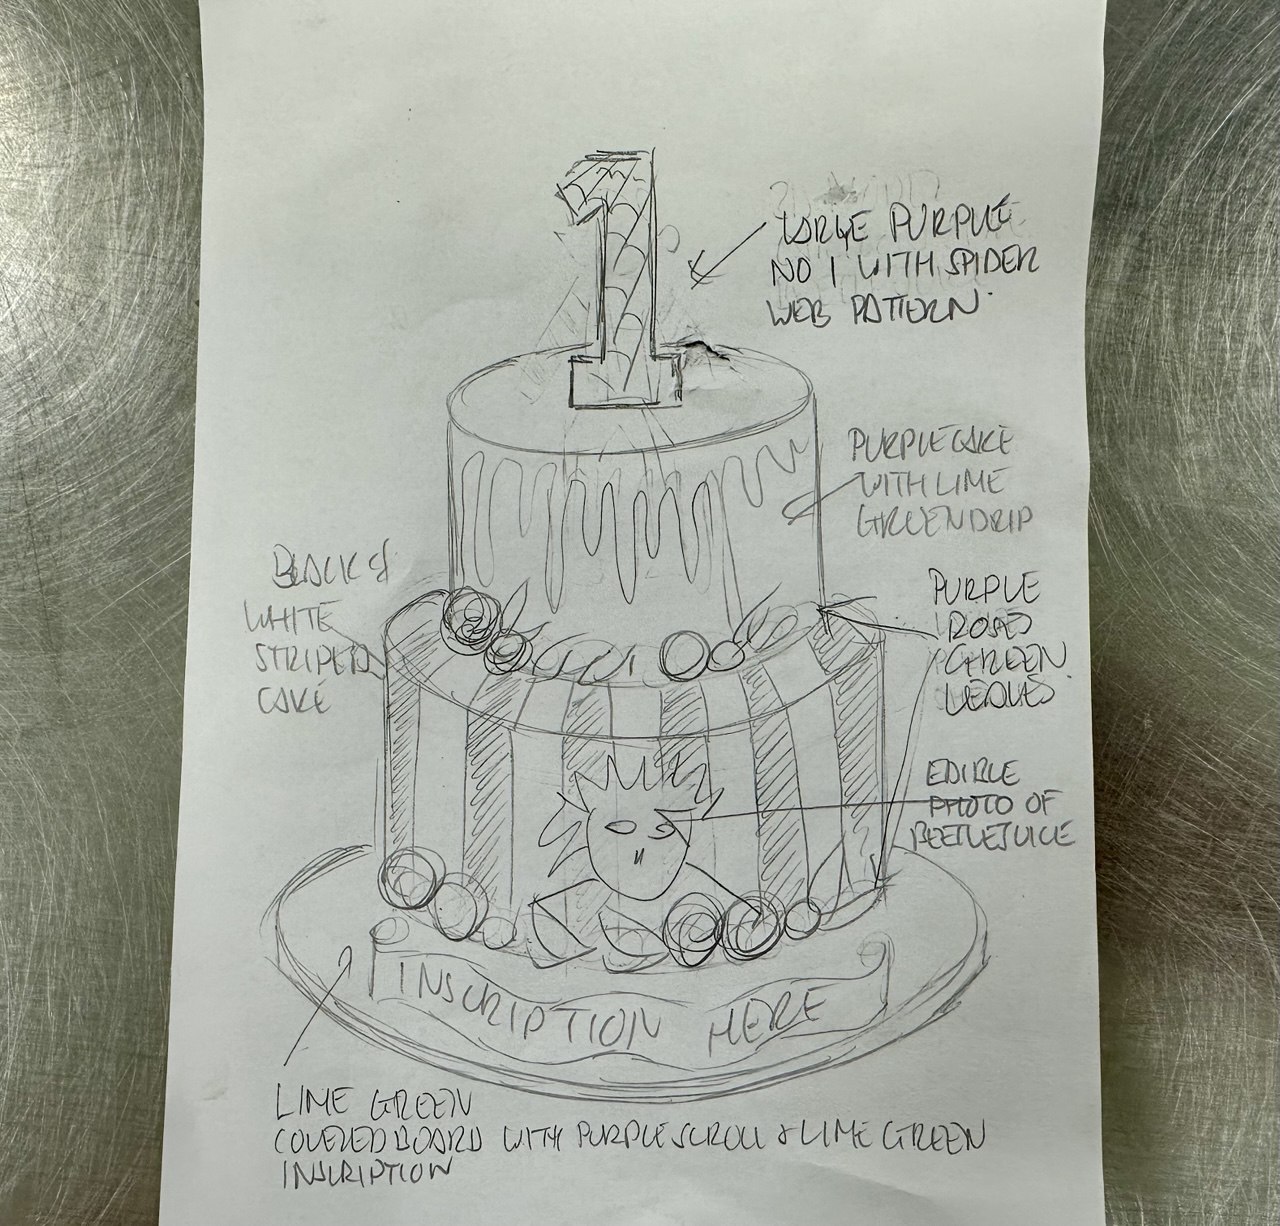 LARGE PURPLE
NO 1 WITH SPIDER
WEB PATTERN.
PURPLE CAKE
WITH LIME
GREEN DRIP
BLACK &
WHITE
STRIPED
CAKE
PURPLE
ROSES
GREEN
LEAVES.
EDIBLE
PHOTO OF
BEETLEJUICE
INSCRIPTION HERE
LIME GREEN
COVERED BOARD WITH PURPLE SCROLL & LIME GREEN
INSCRIPTION